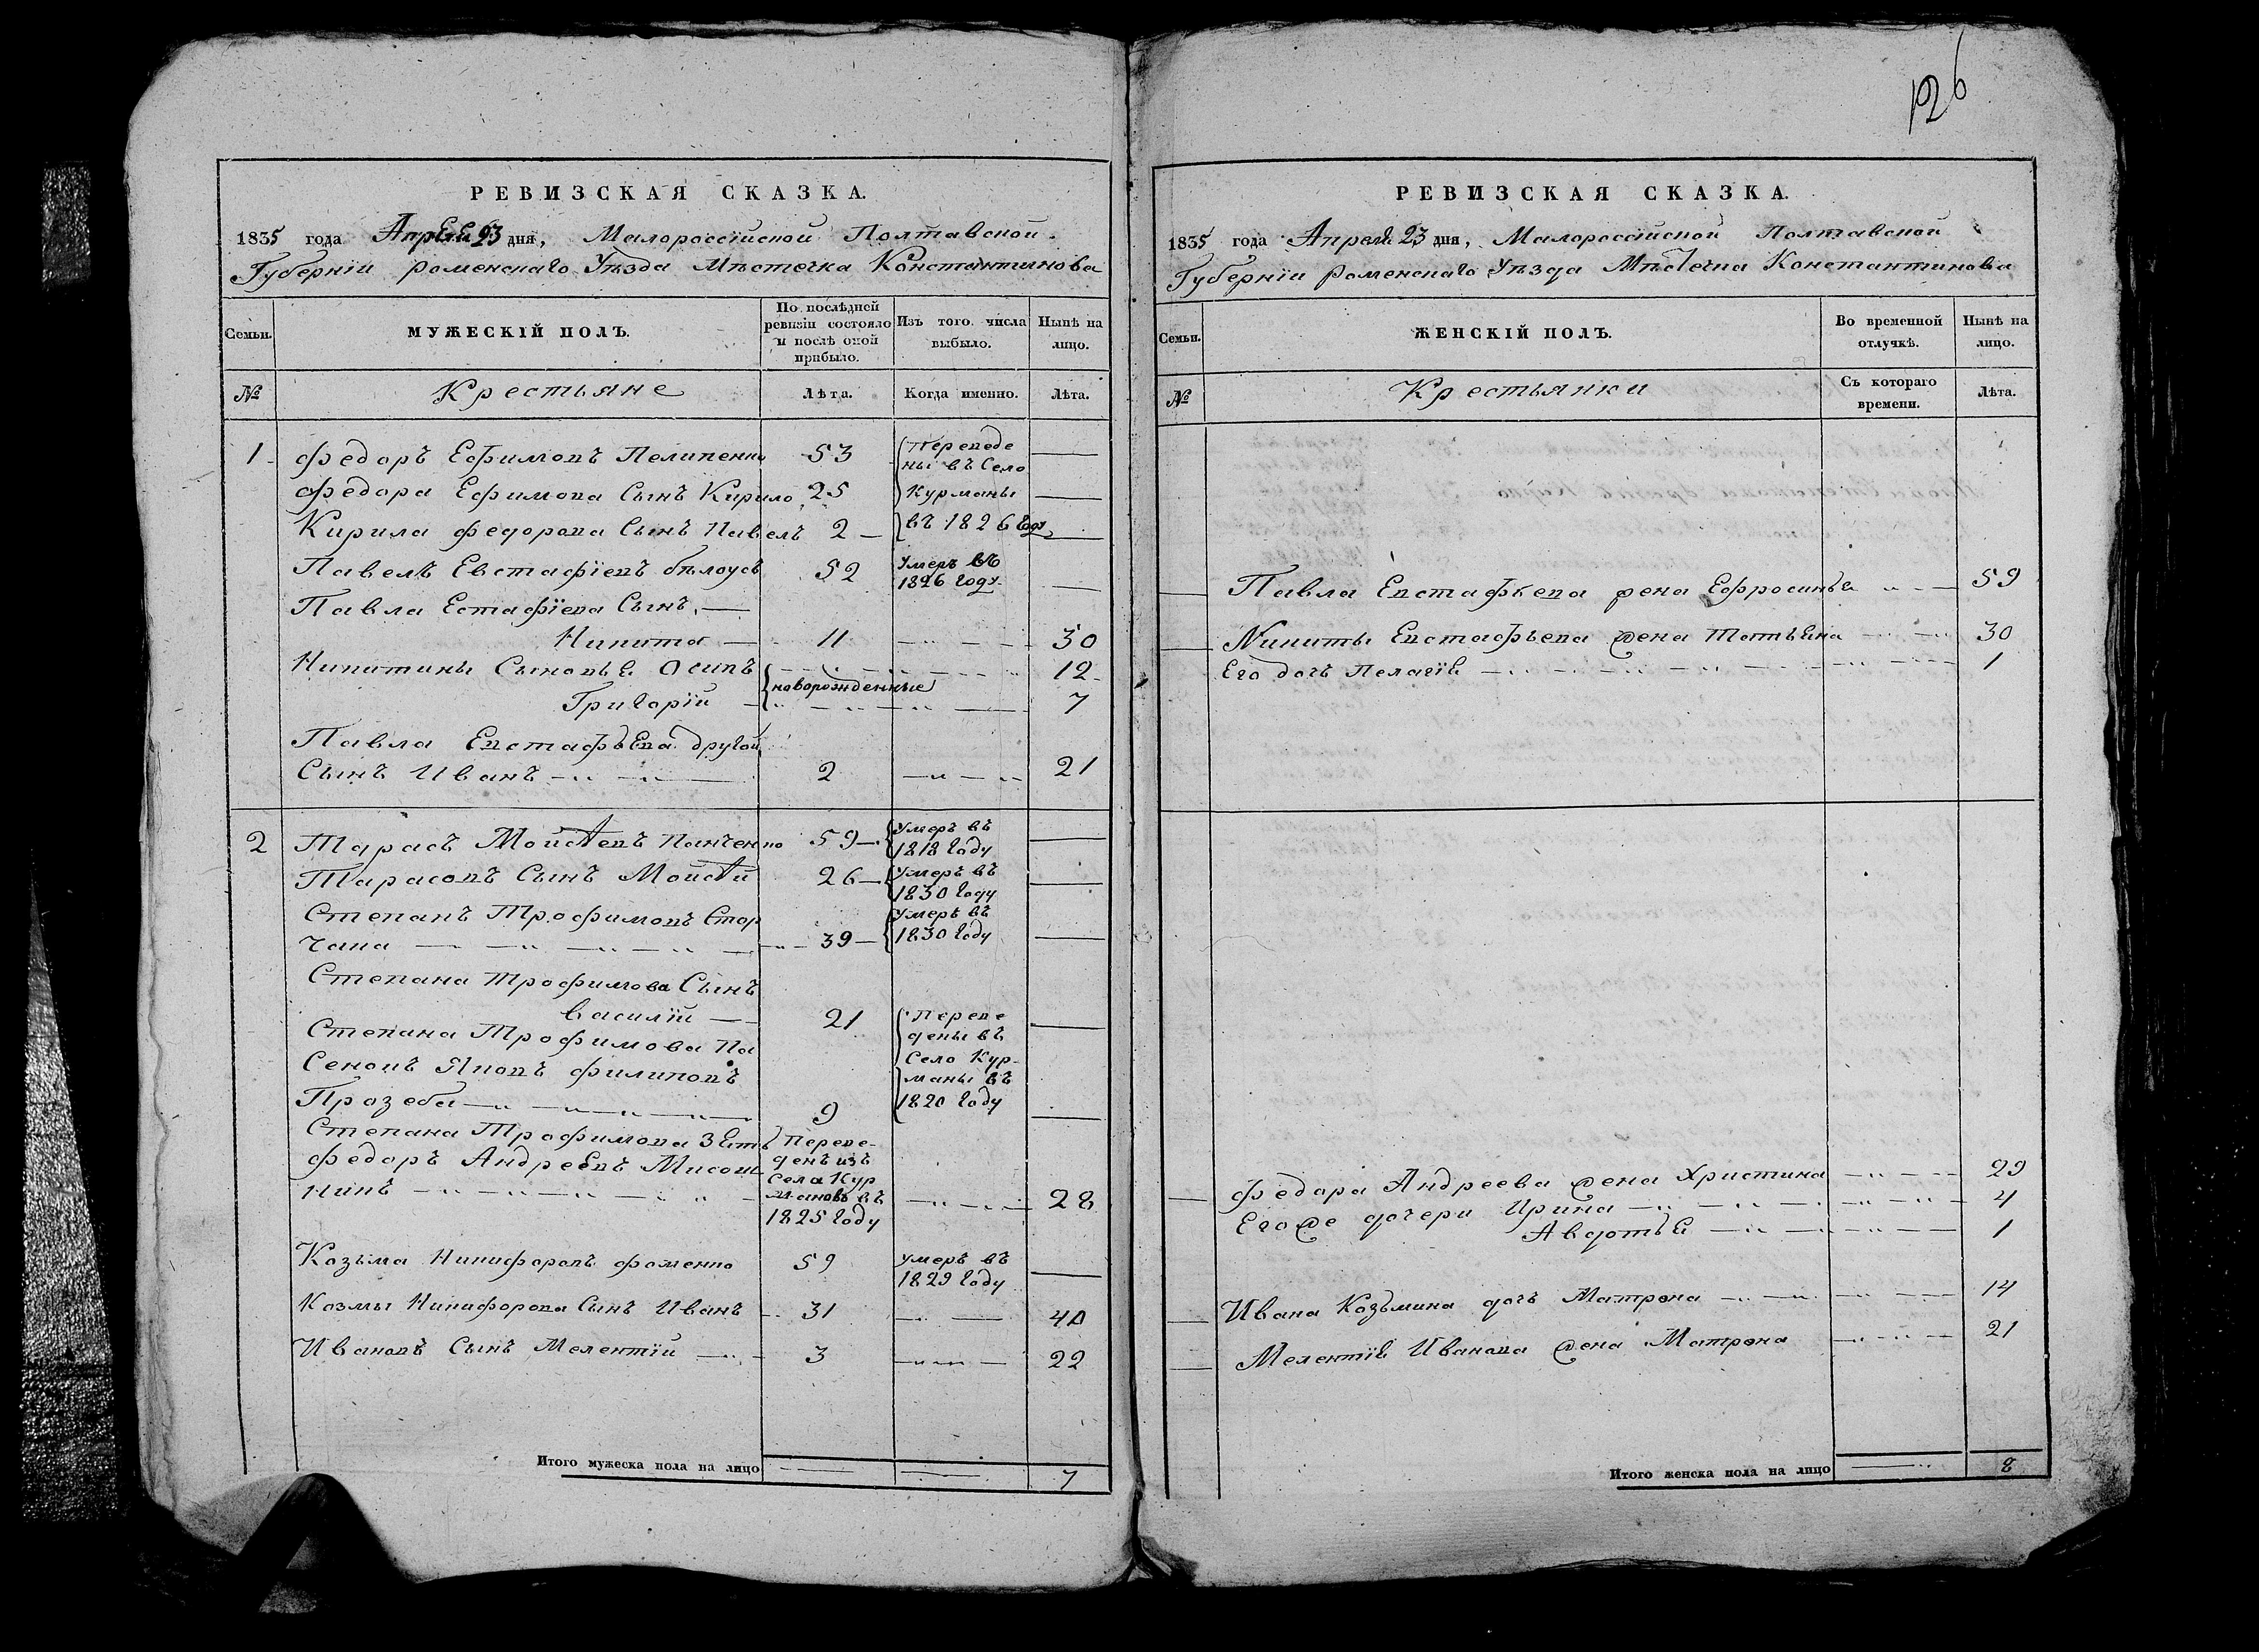 126
РЕВИЗСКАЯ СКАЗКА.
1835 года Апреля 23 дня, Малороссійской Полтавской
Губерніи Роменскаго Уѣзда Мѣстечка Константинова
Семьи.
МУЖЕСКІЙ ПОЛЪ.
По послѣдней ревизіи состояло и послѣ оной прибыло.
Изъ того числа выбыло.
Нынѣ на лицо.
№
Крестьяне
Лѣта.
Когда именно.
Лѣта.
1 Федоръ Ефимовъ Пелипенко 53 Переведе
ны въ Село
Федора Ефимова Сынъ Кирило 25 Курманы
Кирила Федорова Сынъ Павелъ 2 въ 1826 году
Павелъ Евстафіевъ бѣлоусъ 52 Умеръ въ
1826 году
Павла Естафіева Сынъ
Никита 11 30
Никитины Сыновья Осипъ 12
новорожденные
Григорій 7
Павла Евстафьева другой
Сынъ Иванъ 2 21
2 Тарасъ Мойсѣевъ Панченко 59 Умеръ въ
1818 году
Тарасовъ Сынъ Мойсѣй 26 Умеръ въ
1830 году
Степанъ Трофимовъ Стор Умеръ въ
чака 39 1830 году
Степана Трофимова Сынъ
Василій 21 Переве
дены въ
Степана Трофимова Па
Село Кур
Сенокъ Яковъ Филиповъ
маны въ
Прозеба 9 1820 году
Степана Трофимова Зять Переве
Федоръ Андреевъ Мисош денъ изъ
Села Кур
никъ мановъ въ 28
1825 году
Козьма Никифоровъ Фоменко 59 Умеръ въ
1829 году
Козмы Никифорова Сынъ Иванъ 31 40
Ивановъ Сынъ Мелентій 3 22
Итого мужеска пола на лицо 7
РЕВИЗСКАЯ СКАЗКА.
1835 года Апреля 23 дня, Малороссійской Полтавской
Губерніи Роменскаго Уѣзда Мѣстечка Константинова
Семьи.
ЖЕНСКІЙ ПОЛЪ.
Во временной отлучкѣ.
Нынѣ на лицо.
№
Крестьянки
Съ котораго времени.
Лѣта.
Павла Евстафьева жена Ефросинья 59
Никиты Евстафьева жена Татьяна 30
Его дочь Пелагія 1
Федора Андреева жена Христина 29
Его же дочери Ирина 4
Авдотья 1
Ивана Козьмина дочь Матрона 14
Мелентія Иванова жена Матрона 21
Итого женска пола на лицо 8